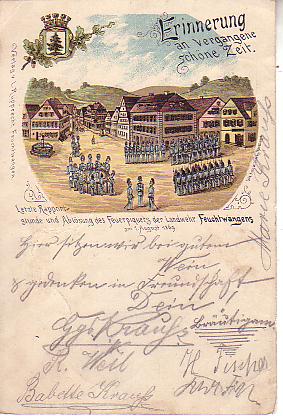 Erinnerung
an vergangene
schöne Zeit.
Letzte Rapport-
stunde und Ablösung des Feuerpiquets der Landwehr Feuchtwangens
am 1. August 1869
Hier sitzen wir bei gutem
Wein
& gedenken in Freundschaft
Dein,
Gg. Krauß,
Bräutigam
R. Weil
H. Fischer
Babette Krauß
Marie Krauß